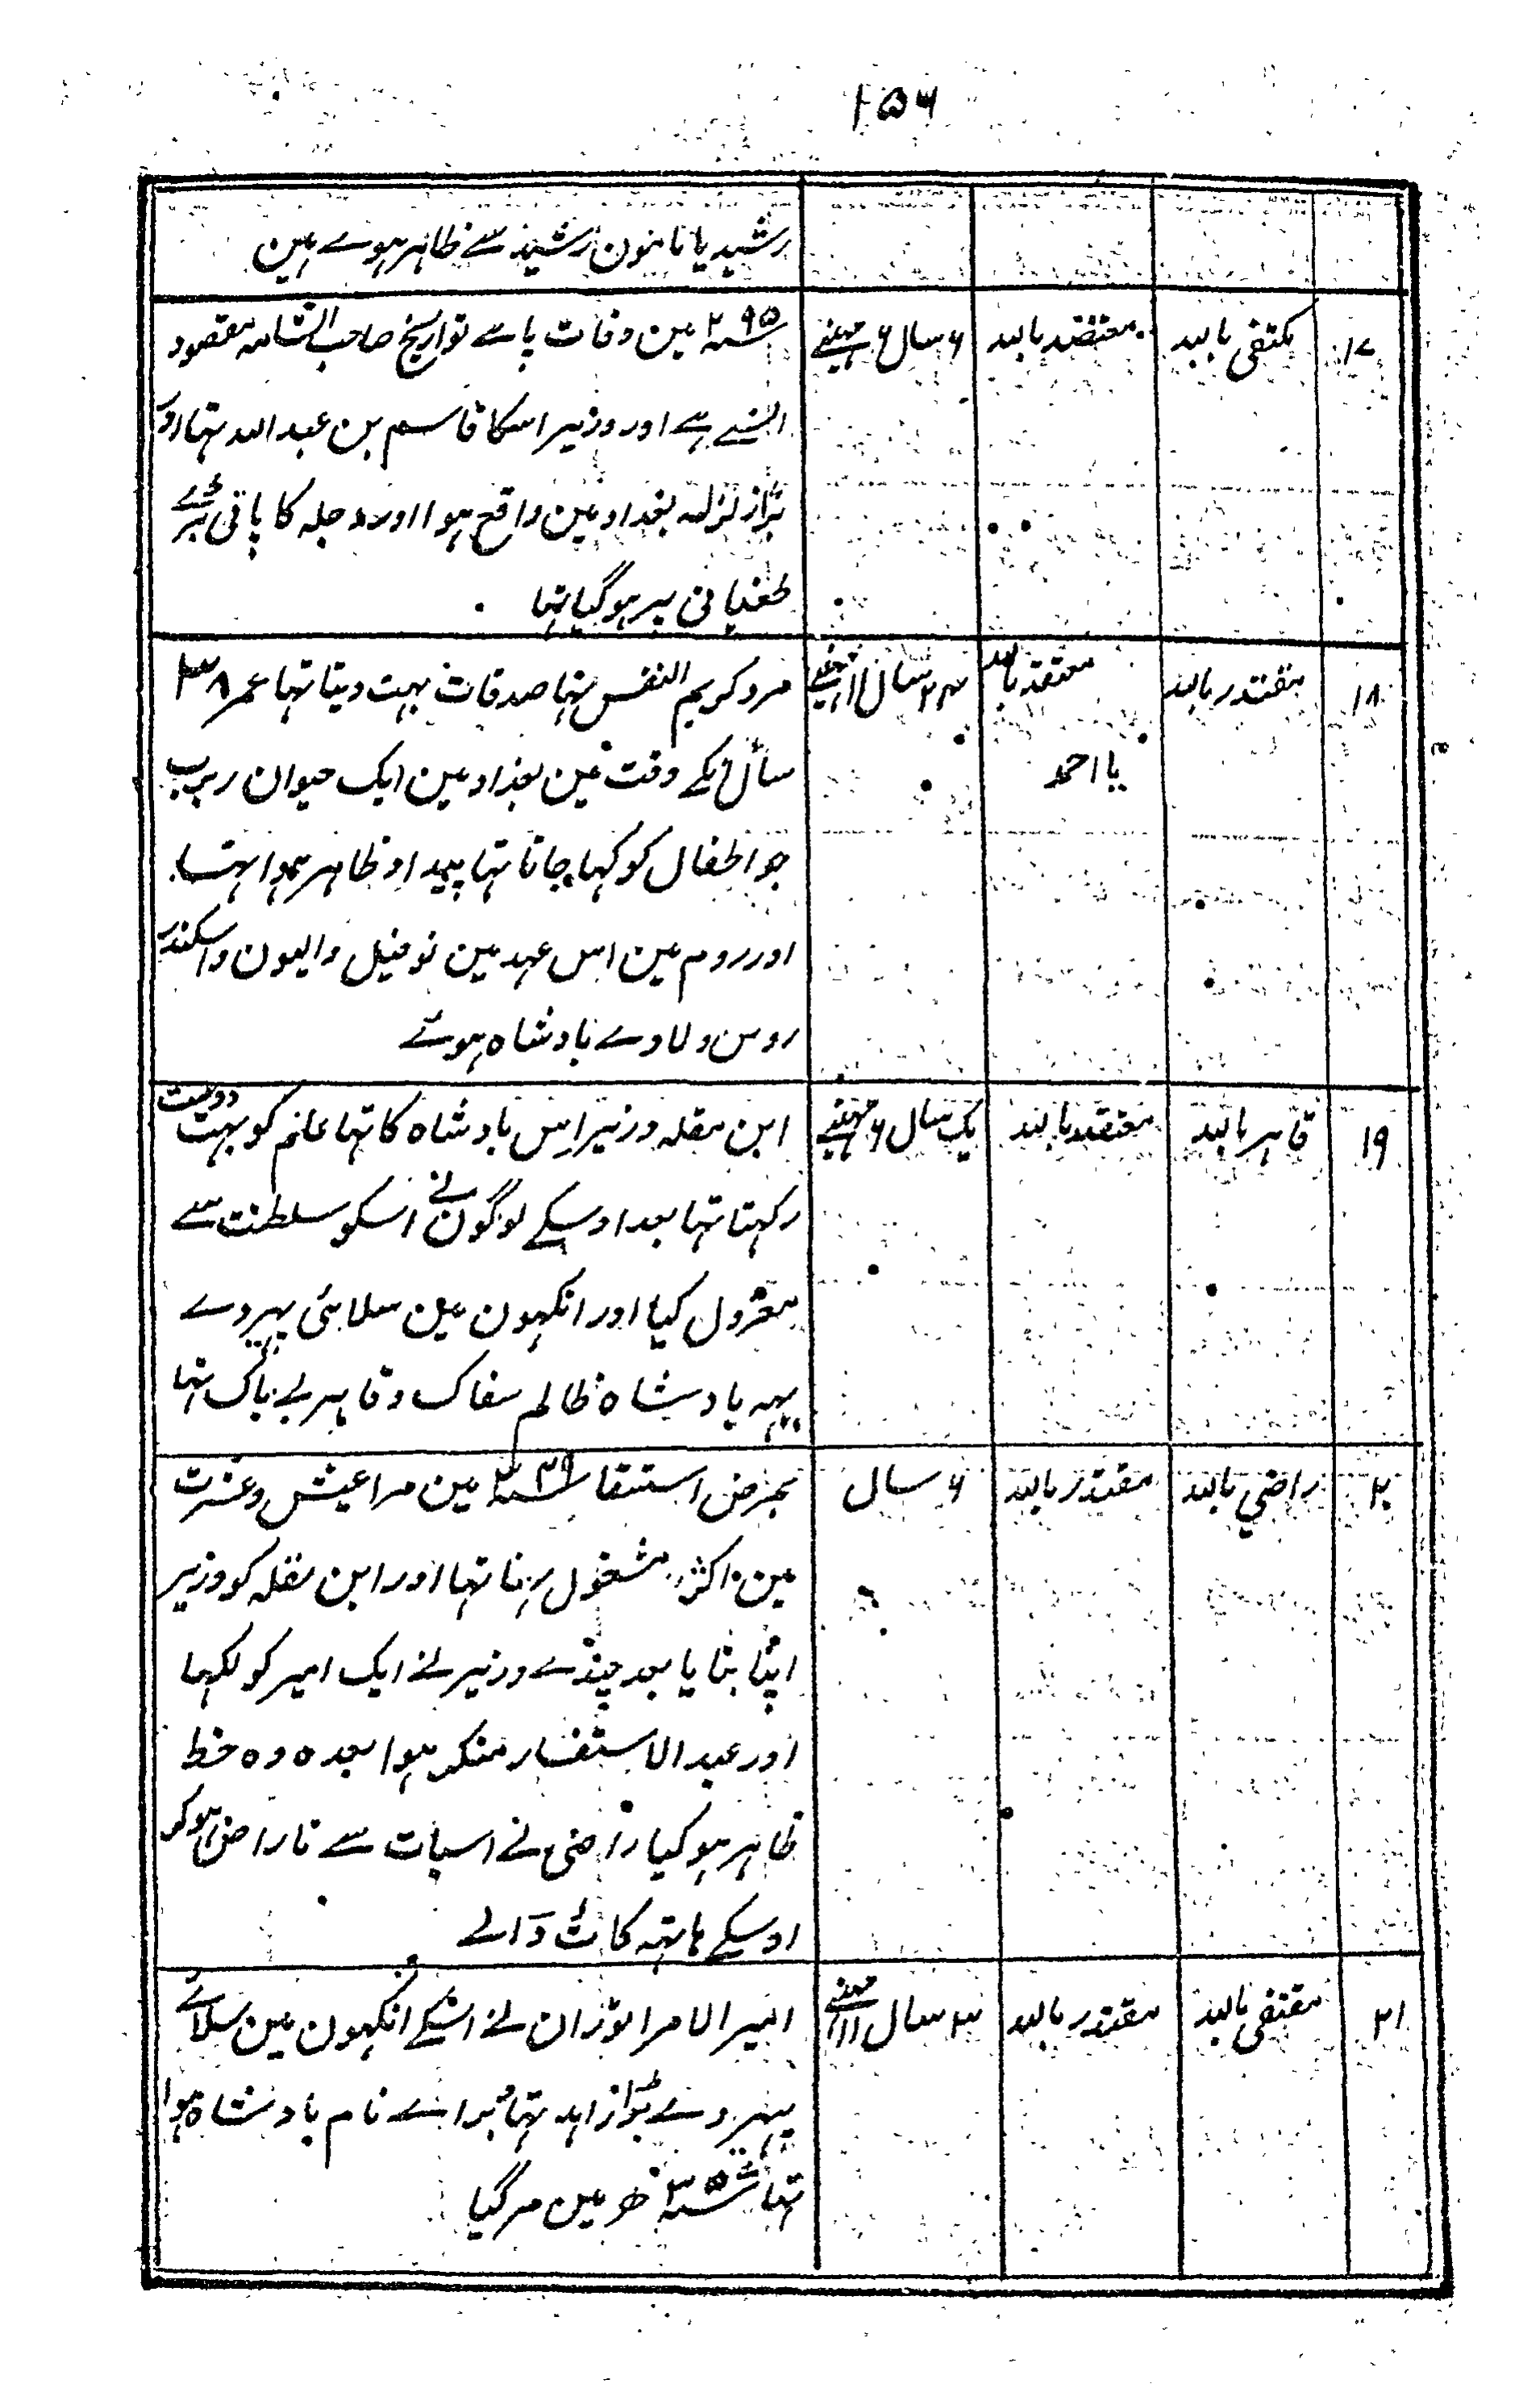 ۱۵۶
رشید یا مامون رشید سے ظاہر ہوے ہین
۱۷ مکتفی باللہ معتضد باللہ ۶ سال ۶ مہینے ۲۹۵ سنہ مین وفات پاے تواریخ صاحب الشامہ مقصود
اسنے ہے اور وزیر اسکا قاسم بن عبد اللہ تہا اور
بڑا زلزلہ بغداد مین واقع ہوا اور دجلہ کا پانی بڑے
طغیانی پر ہوگیا تہا
۱۸ مقتدر باللہ معتضد باللہ ۲۴ سال ۱۱ مہینے مرد کریم النفس تہا صدقات بہت دیتا تہا عمر ۳۸
یا احمد سال اسکے وقت مین بغداد مین ایک حیوان زبرب
جو اطفال کو کہا جاتا تہا پیدا و ظاہر ہوا تہا
اور روم مین اس عہد مین نوفیل و الیون و اسکندر
روس و لاوے بادشاہ ہوے
۱۹ قاہر باللہ معتضد باللہ یک سال ۶ مہینے ابن مقلہ وزیر اِس بادشاہ کا تہا علم کو بہت دوست
رکہتا تہا بعد اوسکے لوگون نے اسکو سلطنت سے
معزول کیا اور انکہون مین سلائی پہیر دے
یہہ بادشاہ ظالم سفاک و قاہر بے باک تہا
۲۰ راضی باللہ مقتدر باللہ ۶ سال بمرض استسقا ۳۲۹ سنہ مین مرا عیش و عشرت
مین اکثر مشغول رہتا تہا اور ابن مقلہ کو وزیر
اپنا بنایا بعد چندے وزیر نے ایک امیر کو لکہا
اور عند الاستفسار منکر ہوا بعدہ وہ خط
ظاہر ہو گیا راضی نے اسبات سے ناراض ہو کر
اوسکے ہاتہہ کاٹ ڈالے
۲۱ متقی باللہ مقتدر باللہ ۳ سال ۱۱ مہینے امیر الامرا توزان نے اسکے انکہون مین سلائے
پہیر دے بڑا زاہد تہا براے نام بادشاہ ہوا
تہا ۳۵۰ سنہ مین مرگیا